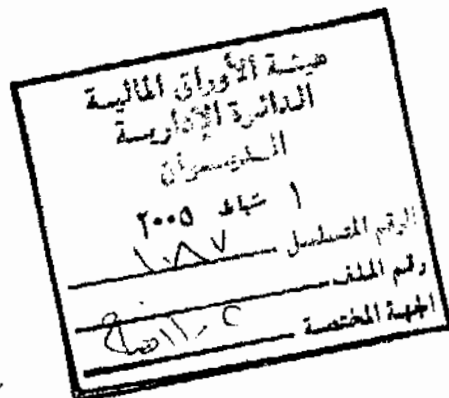 هيئة الأوراق المالية
الدائرة الإدارية
الديوان
١ شباط ٢٠٠٥
الرقم المتسلسل ١٠٨٧
رقم الملف
الجهة المختصة